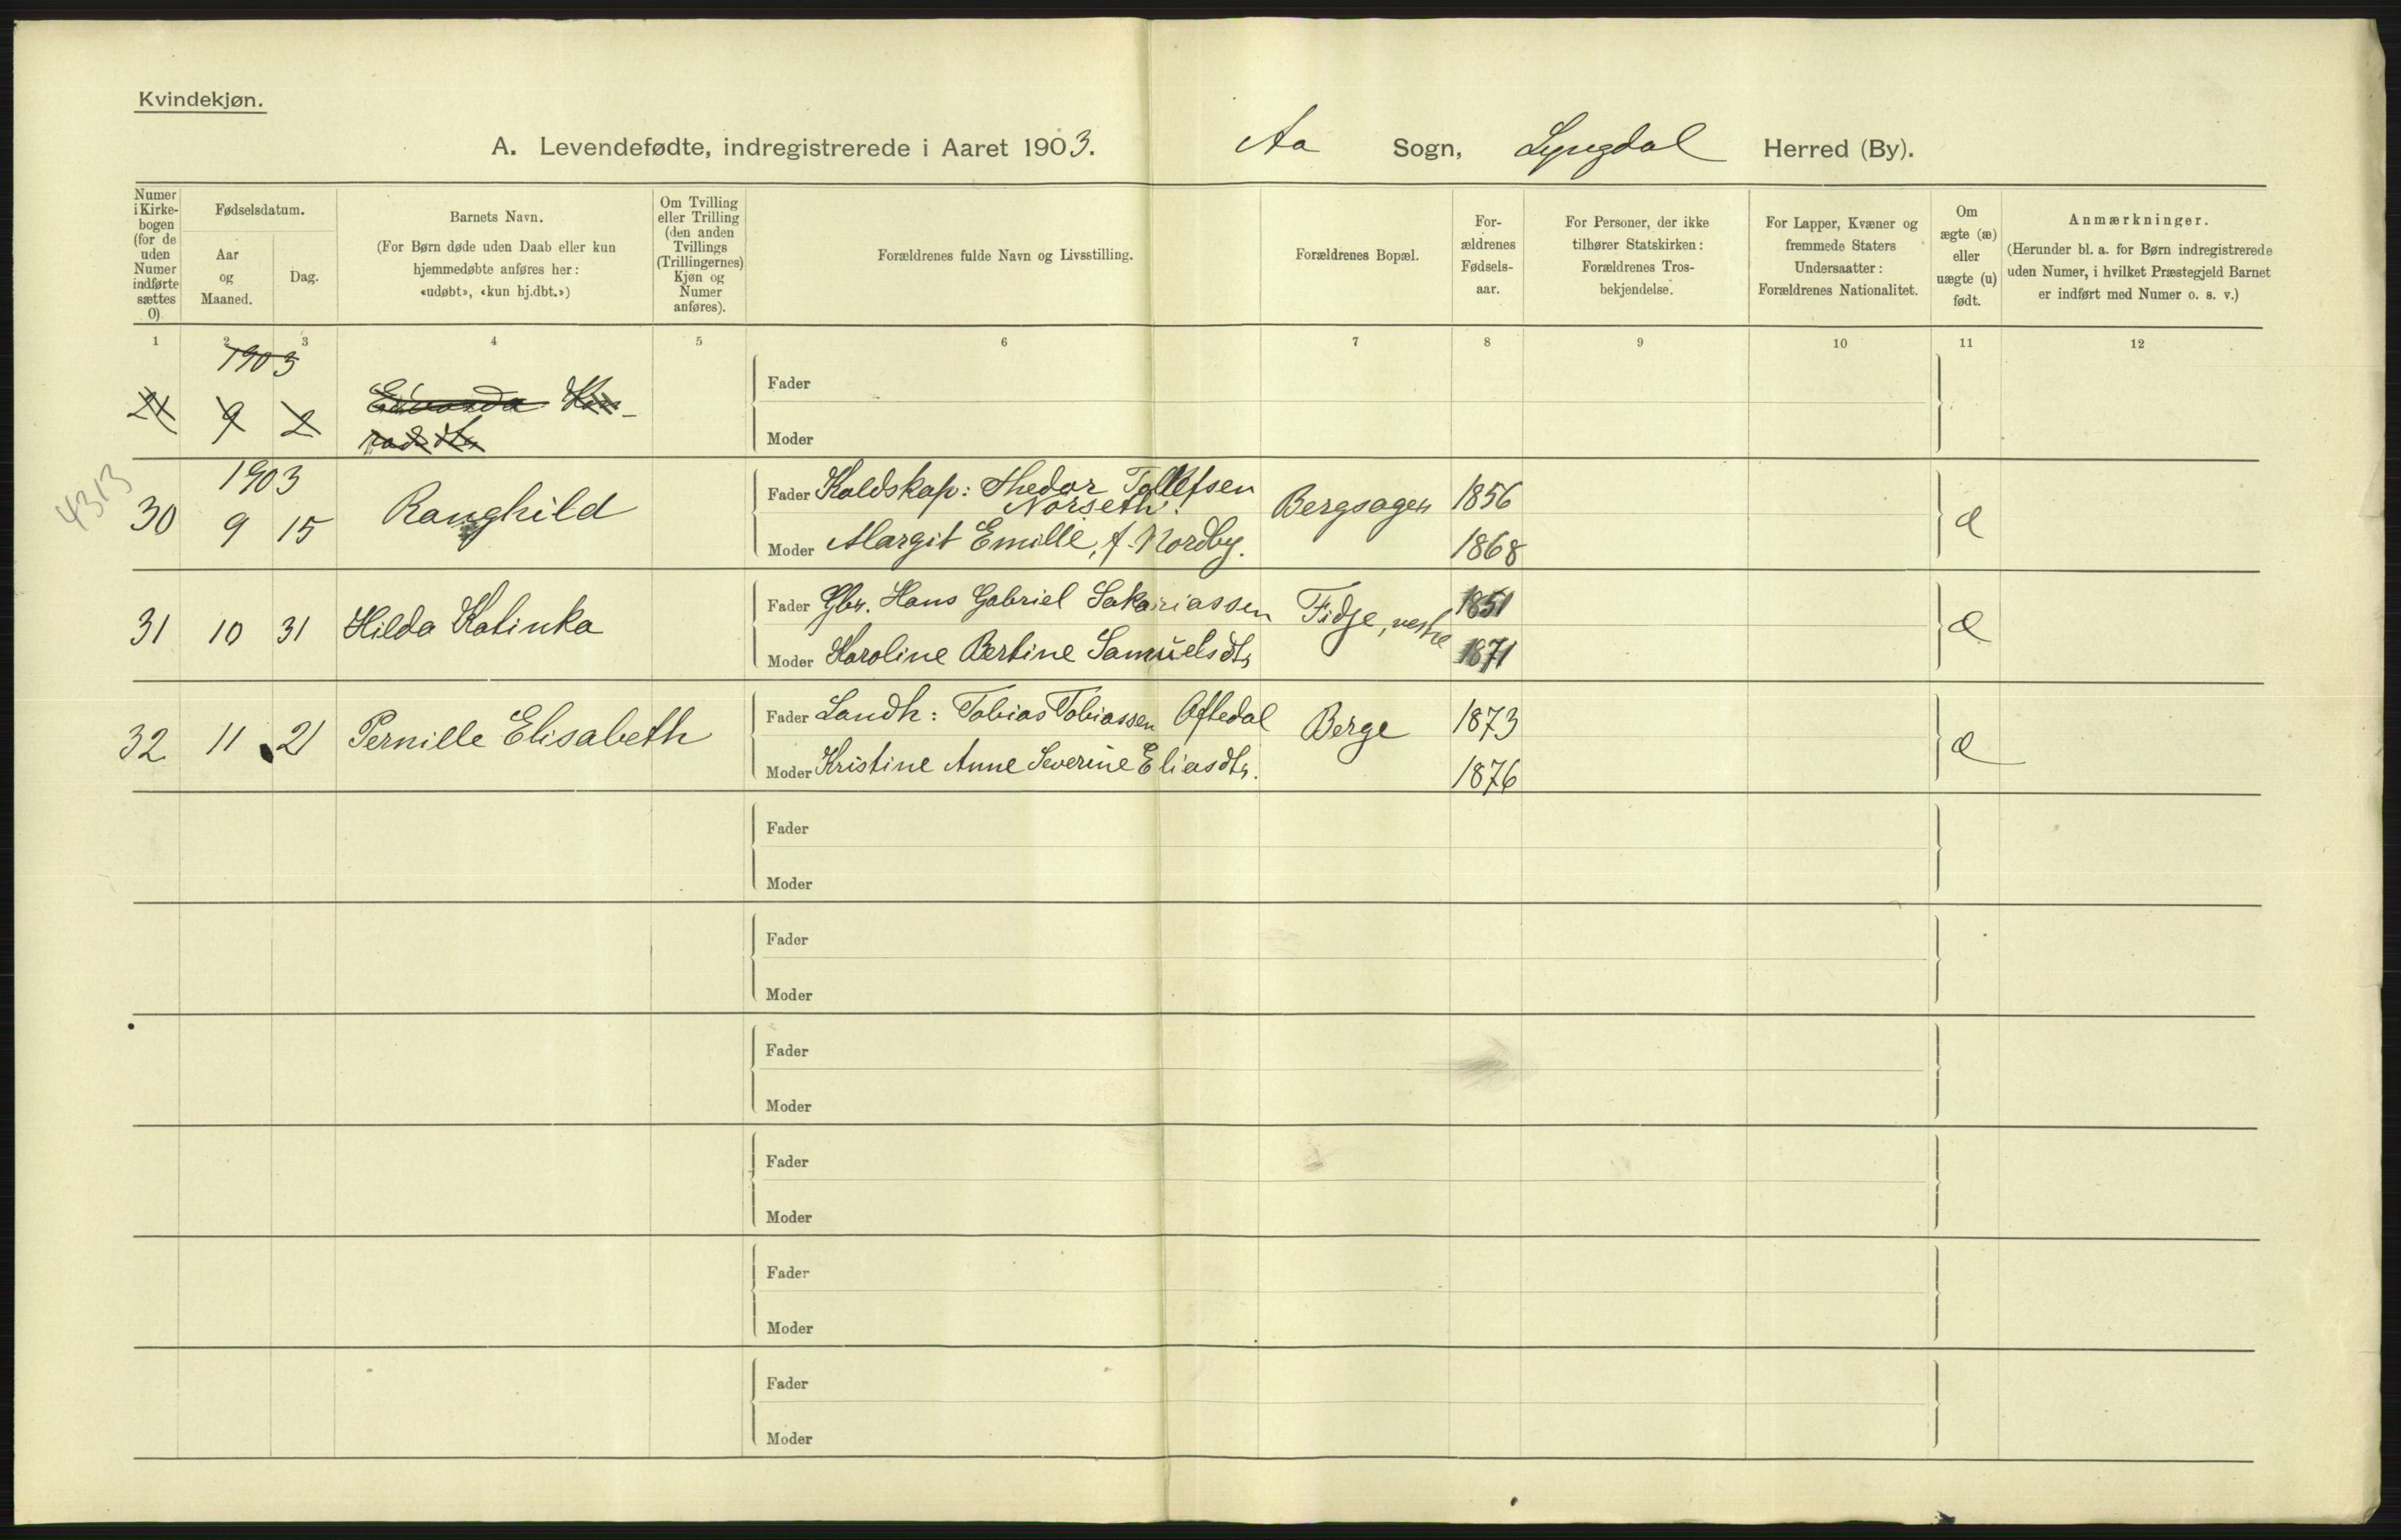 Kvindekjøn.
A. Levendefødte, indregistrerede i Aaret 1903. Aa Sogn, Lyngdal Herred (By).
Numer i Kirke-bogen (for de uden Numer indførte sættes 0)
Fødselsdatum.
Aar og Maaned.
Dag.
Barnets Navn.
(For Børn døde uden Daab eller kun hjemmedøbte anføres her: «udøbt», «kun hj.dbt.»)
Om Tvilling eller Trilling (den anden Tvillings (Trillingernes) Kjøn og Numer anføres).
Forældrenes fulde Navn og Livsstilling.
Forældrenes Bopæl.
For-ældrenes Fødsels-aar.
For Personer, der ikke tilhører Statskirken: Forældrenes Tros-bekjendelse.
For Lapper, Kvæner og fremmede Staters Undersaatter: Forældrenes Nationalitet.
Om ægte (æ) eller uægte (u) født.
Anmærkninger.
(Herunder bl. a. for Børn indregistrerede uden Numer, i hvilket Præstegjeld Barnet er indført med Numer o. s. v.)
1 2 3 4 5 6 7 8 9 10 11 12
1903
9 2
Fader
Moder
4313
1903
30 9 15 Ranghild
Fader Koldskap: Thedor Tallefsen Bergsagen 1856 æ
Nørseth.
Moder Margit Emilie, f. Nordby. 1868
31 10 31 Hilda Katinka
Fader Gbr. Hans Gabriel Sakariassen Fidje, vestre 1851 æ
Moder Karoline Bertine Samuelsdtr 1871
32 11 21 Pernille Elisabeth
Fader Landh: Tobias Tobiassen Oftedal Berge 1873 æ
Moder Kristine Anne Severine Eliasdtr. 1876
Fader
Moder
Fader
Moder
Fader
Moder
Fader
Moder
Fader
Moder
Fader
Moder